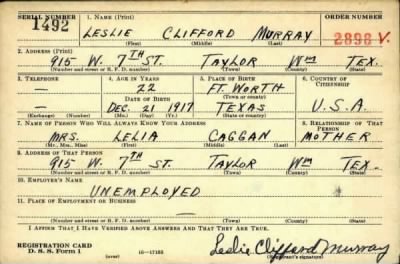 SERIAL NUMBER 1. NAME (Print) ORDER NUMBER
1492 LESLIE CLIFFORD MURRAY 2898 V.
(First) (Middle) (Last)
2. ADDRESS (Print)
915 W. 7TH ST. TAYLOR Wm TEX.
(Number and street or R. F. D. number) (Town) (County) (State)
3. TELEPHONE 4. AGE IN YEARS 5. PLACE OF BIRTH 6. COUNTRY OF CITIZENSHIP
— 22 FT. WORTH
DATE OF BIRTH (Town or county)
— DEC. 21 1917 TEXAS U.S.A.
(Exchange) (Number) (Mo.) (Day) (Yr.) (State or country)
7. NAME OF PERSON WHO WILL ALWAYS KNOW YOUR ADDRESS 8. RELATIONSHIP OF THAT PERSON
MRS. LELIA CAGGAN MOTHER
(Mr., Mrs., Miss) (First) (Middle) (Last)
9. ADDRESS OF THAT PERSON
915 W. 7TH ST. TAYLOR Wm TEX.
(Number and street or R. F. D. number) (Town) (County) (State)
10. EMPLOYER'S NAME
UNEMPLOYED
11. PLACE OF EMPLOYMENT OR BUSINESS
—
(Number and street or R. F. D. number) (Town) (County) (State)
I AFFIRM THAT I HAVE VERIFIED ABOVE ANSWERS AND THAT THEY ARE TRUE.
REGISTRATION CARD
D. S. S. Form 1 (over) 16—17105 Leslie Clifford Murray
(Registrant's signature)